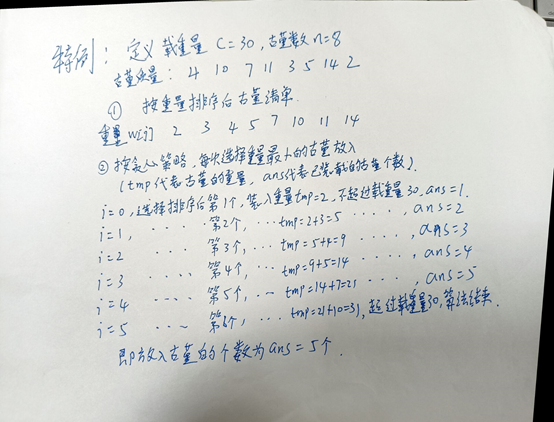 特例：定义载重量 C=30，古董数 n=8
古董质量：4 10 7 11 3 5 14 2
① 按重量排序后古董清单.
重量 w[i] 2 3 4 5 7 10 11 14
② 按贪心策略，每次选择重量最小的古董放入
(tmp代表古董的重量，ans代表已装载的古董个数).
i=0，选择排序后第1个，装入重量tmp=2，不超过载重量30，ans=1.
i=1，····第2个，··· tmp=2+3=5 ····，ans=2
i=2 ···· 第3个，··· tmp=5+4=9 ····，ans=3
i=3 ···· 第4个，··· tmp=9+5=14 ····，ans=4
i=4 ···· 第5个，··· tmp=14+7=21 ····，ans=5
i=5 ···· 第6个，··· tmp=21+10=31，超过载重量30，算法结束.
即放入古董的个数为 ans=5个.